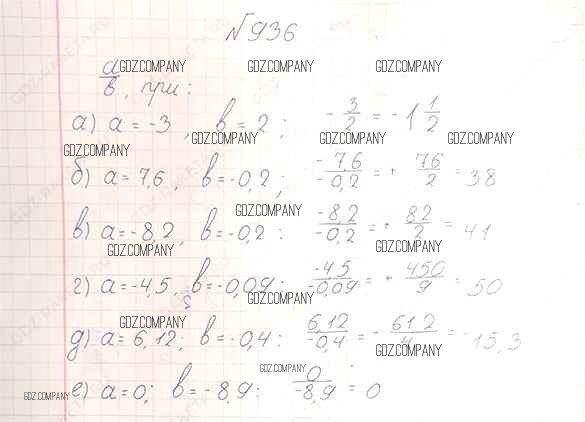 №936
a/b, при:
а) a = -3, b = 2; -3/2 = -1 1/2
б) a = 7,6, b = -0,2; -7,6/-0,2 = + 76/2 = 38
в) a = -8,2, b = -0,2: -8,2/-0,2 = + 82/2 = 41
г) a = -4,5, b = -0,09: -4,5/-0,09 = + 450/9 = 50
д) a = 6,12; b = -0,4: 6,12/-0,4 = - 61,2/4 = -15,3
е) a = 0; b = -8,9: 0/-8,9 = 0
GDZ.COMPANY GDZ.COMPANY GDZ.COMPANY
GDZ.COMPANY GDZ.COMPANY
GDZ.COMPANY
GDZ.COMPANY
GDZ.COMPANY GDZ.COMPANY
GDZ.COMPANY
GDZ.COMPANY GDZ.COMPANY
GDZ.COMPANY
GDZ.COMPANY